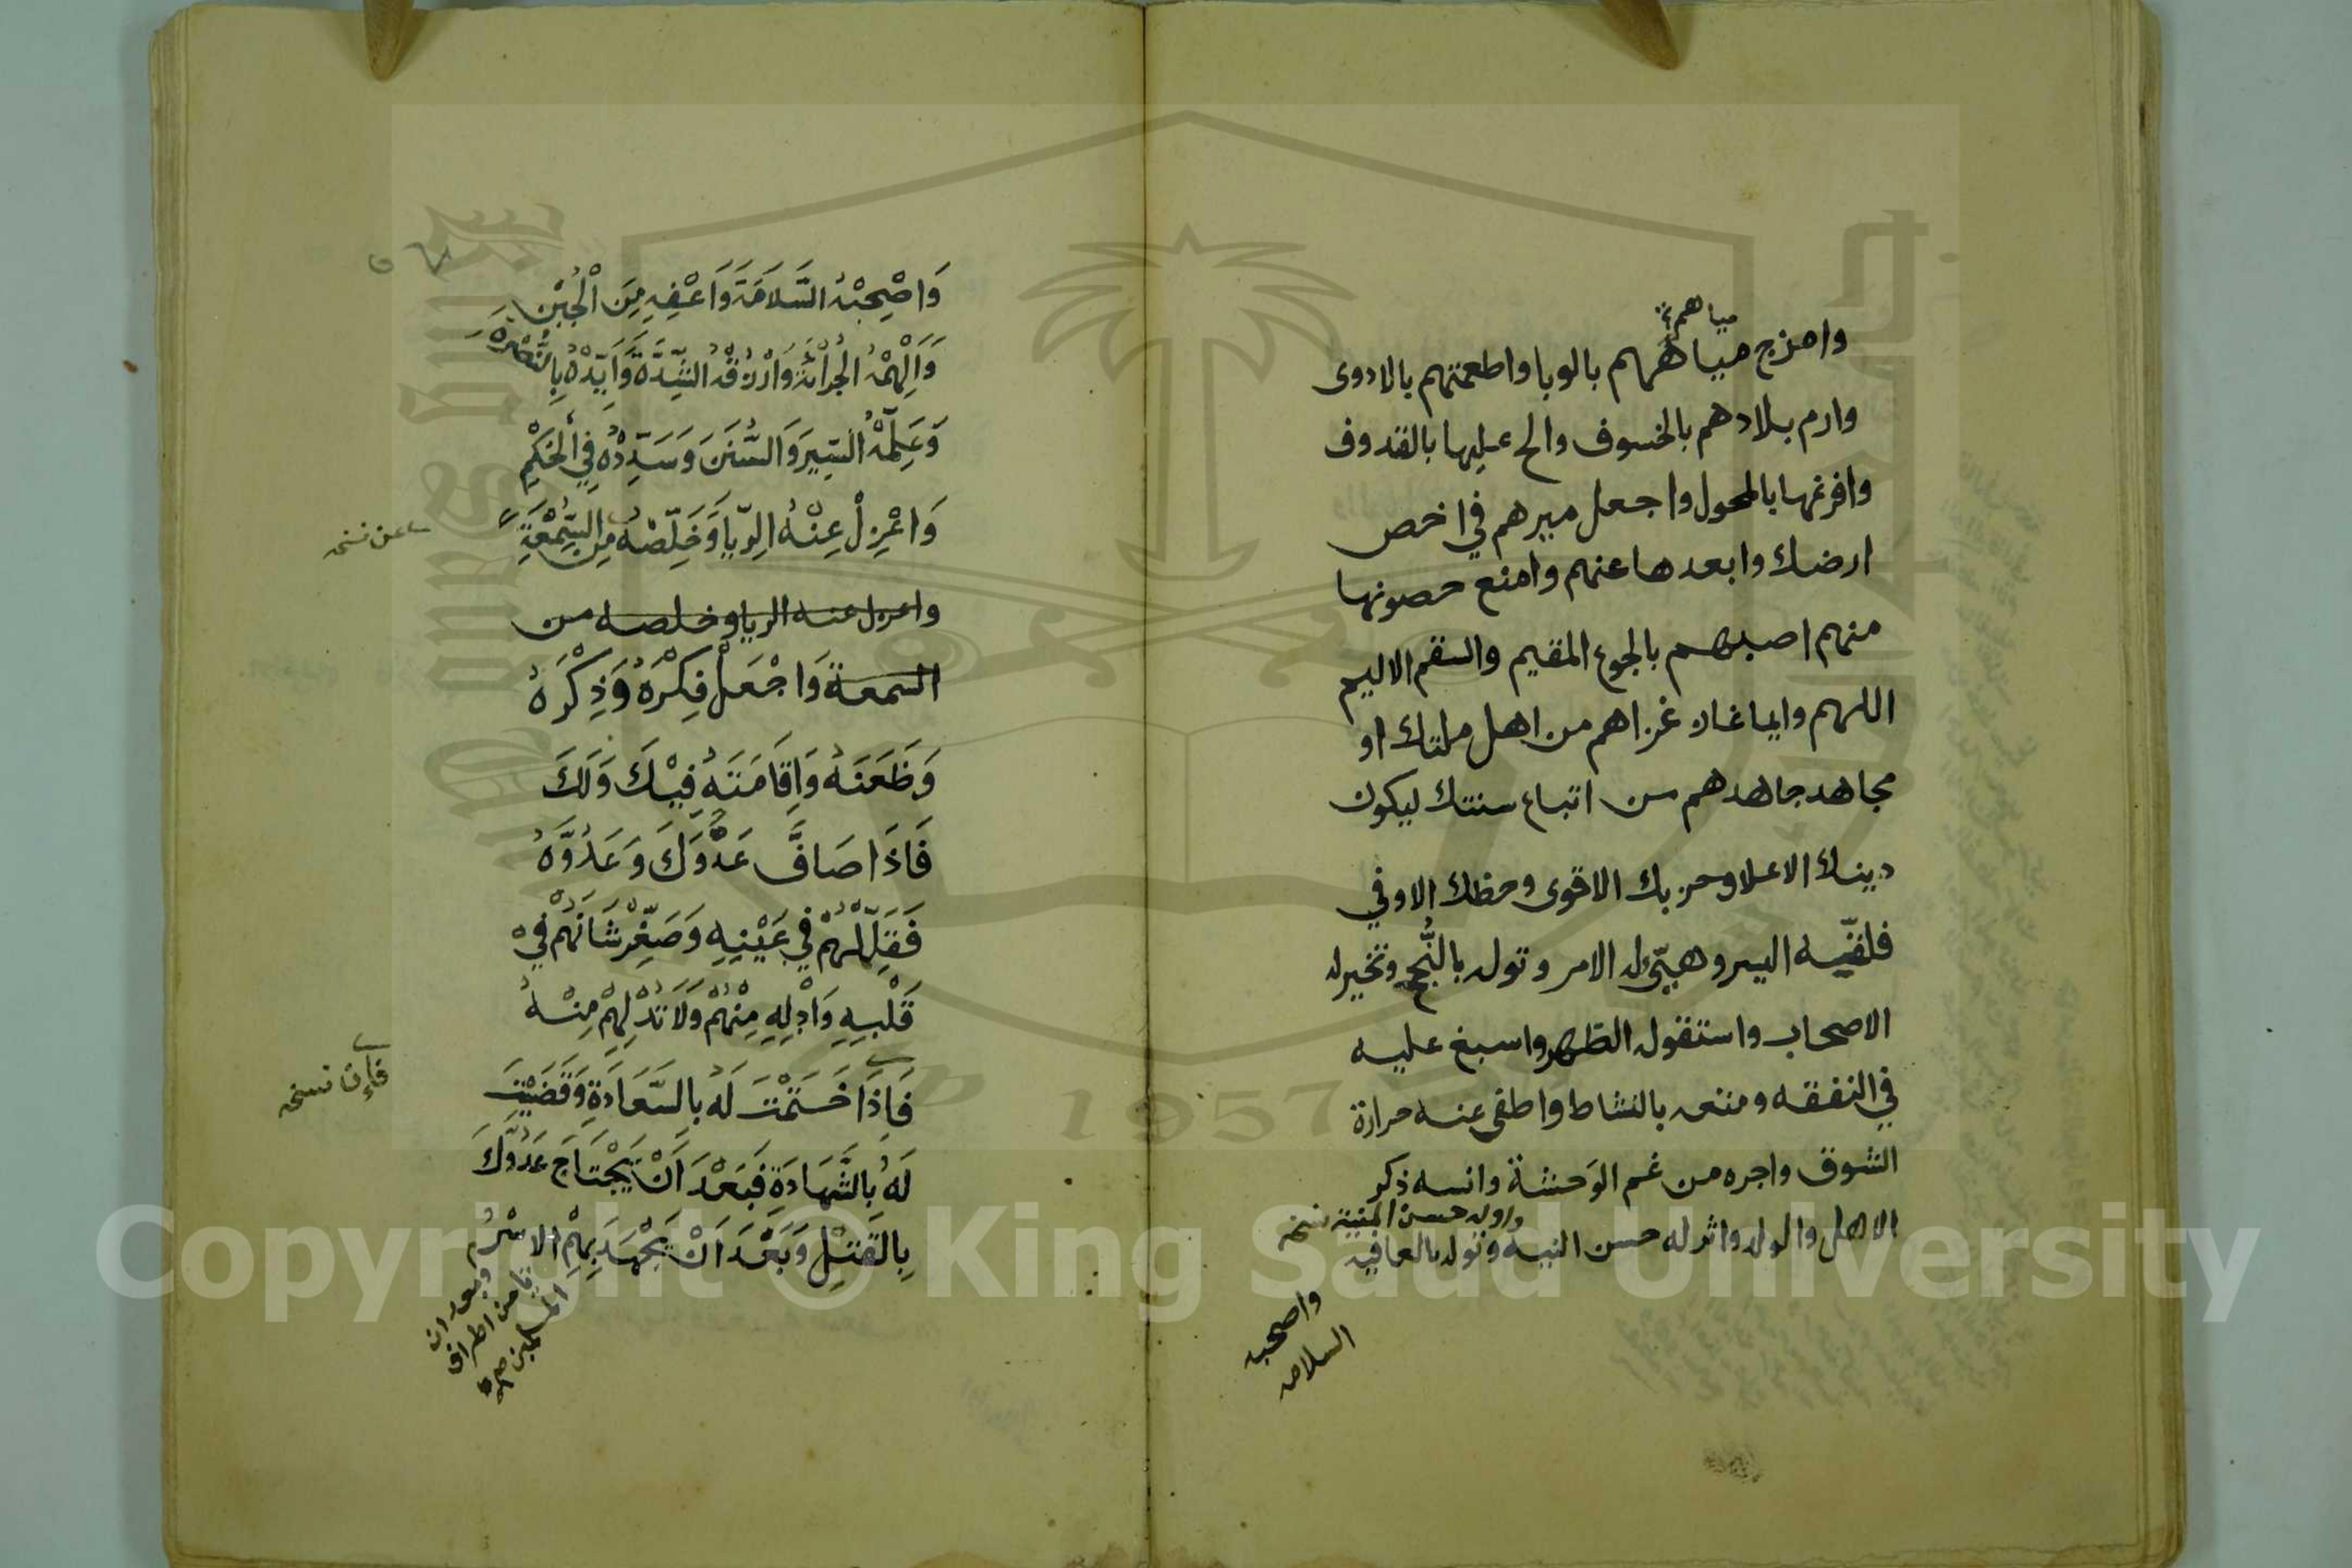 مياهم
وامزج مياههم بالوبا واطعمتهم بالادوى
وارم بلادهم بالخسوف والح عليها بالقدوف
وافرغها بالمحول واجعل ميرهم في احص
ارضك وابعدها عنهم وامنع حصونها
منهم اصبهم بالجوع المقيم والسقم الاليم
اللهم وايما غاز غزاهم من اهل ملتك او
مجاهد جاهدهم من اتباع سنتك ليكون
دينك الاعلا وحزبك الاقوى وحظك الاوفي
فلقّيه اليسر وهيّئ له الامر وتوله بالنُّجح وتخير له
الاصحاب واستقوله الظهر واسبغ عليه
في النفقه ومتعه بالنشاط واطفى عنه حرارة
الشوق واجره من غم الوَحشة وانسه ذكر
الاهل والولد واثر له حسن النيه وتوله بالعافيه
نسخه
واصحبه
السلامه
وَاصْحِبْهُ السَّلَامَةَ وَاَعْفِهِ مِنَ الْجُبْنِ
وَاَلْهِمْهُ الْجُرْأَةَ وَارْزُقْهُ الشِّدَّةَ وَاَيِّدْهُ بِالنُّصْرَةِ
وَعَلِّمْهُ السِّيَرَ وَالسُّنَنَ وَسَدِّدْهُ فِي الْحُكْمِ
وَاعْزِلْ عِنْهُ الرِّيَا وَخَلِّصْهُ مِنَ السُّمْعَةِ
عن نسخه
واعزل عنه الريا وخلصه من
السمعة وَاجْعَلْ فِكْرَهُ وَذِكْرَهُ
وَظَعَنَهُ وَاِقَامَتَهُ فِيْكَ وَلَكَ
فَاِذَا صَافَّ عَدُوَّكَ وَعَدُوَّهُ
فَقَلِّلْهُمْ فِي عَيْنِهِ وَصَغِّرْ شَانَهُمْ فِي
قَلْبِهِ وَاَدِلْهِ مِنْهُمْ وَلَا تُدْلِهِمْ مِنْهُ
فَاِذَا خَتَمْتَ لَهُ بِالسَّعَادَةِ وَقَضَيْتَ
فإن نسخه
لَهُ بِالشَّهَادَةِ فَبَعْدَ اَنْ يَجْتَاحَ عَدُوَّكَ
بِالقَتْلِ وَبَعْدَ اَنْ يَجْهَدَ بِهِمُ الاسْرُ
وبعد ان
تامن اطراف
المسلمين صح